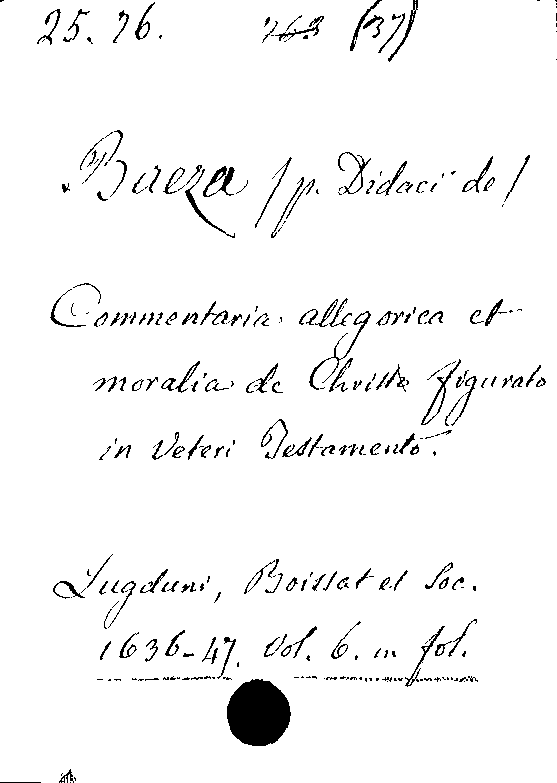 25.76. 763 (37)
Baeza / p. Didaci de /
Commentaria allegorica et
moralia de Christo figurato
in Veteri Testamento.
Lugduni, Boissat et Soc.
1636-47. Vol. 6. in fol.